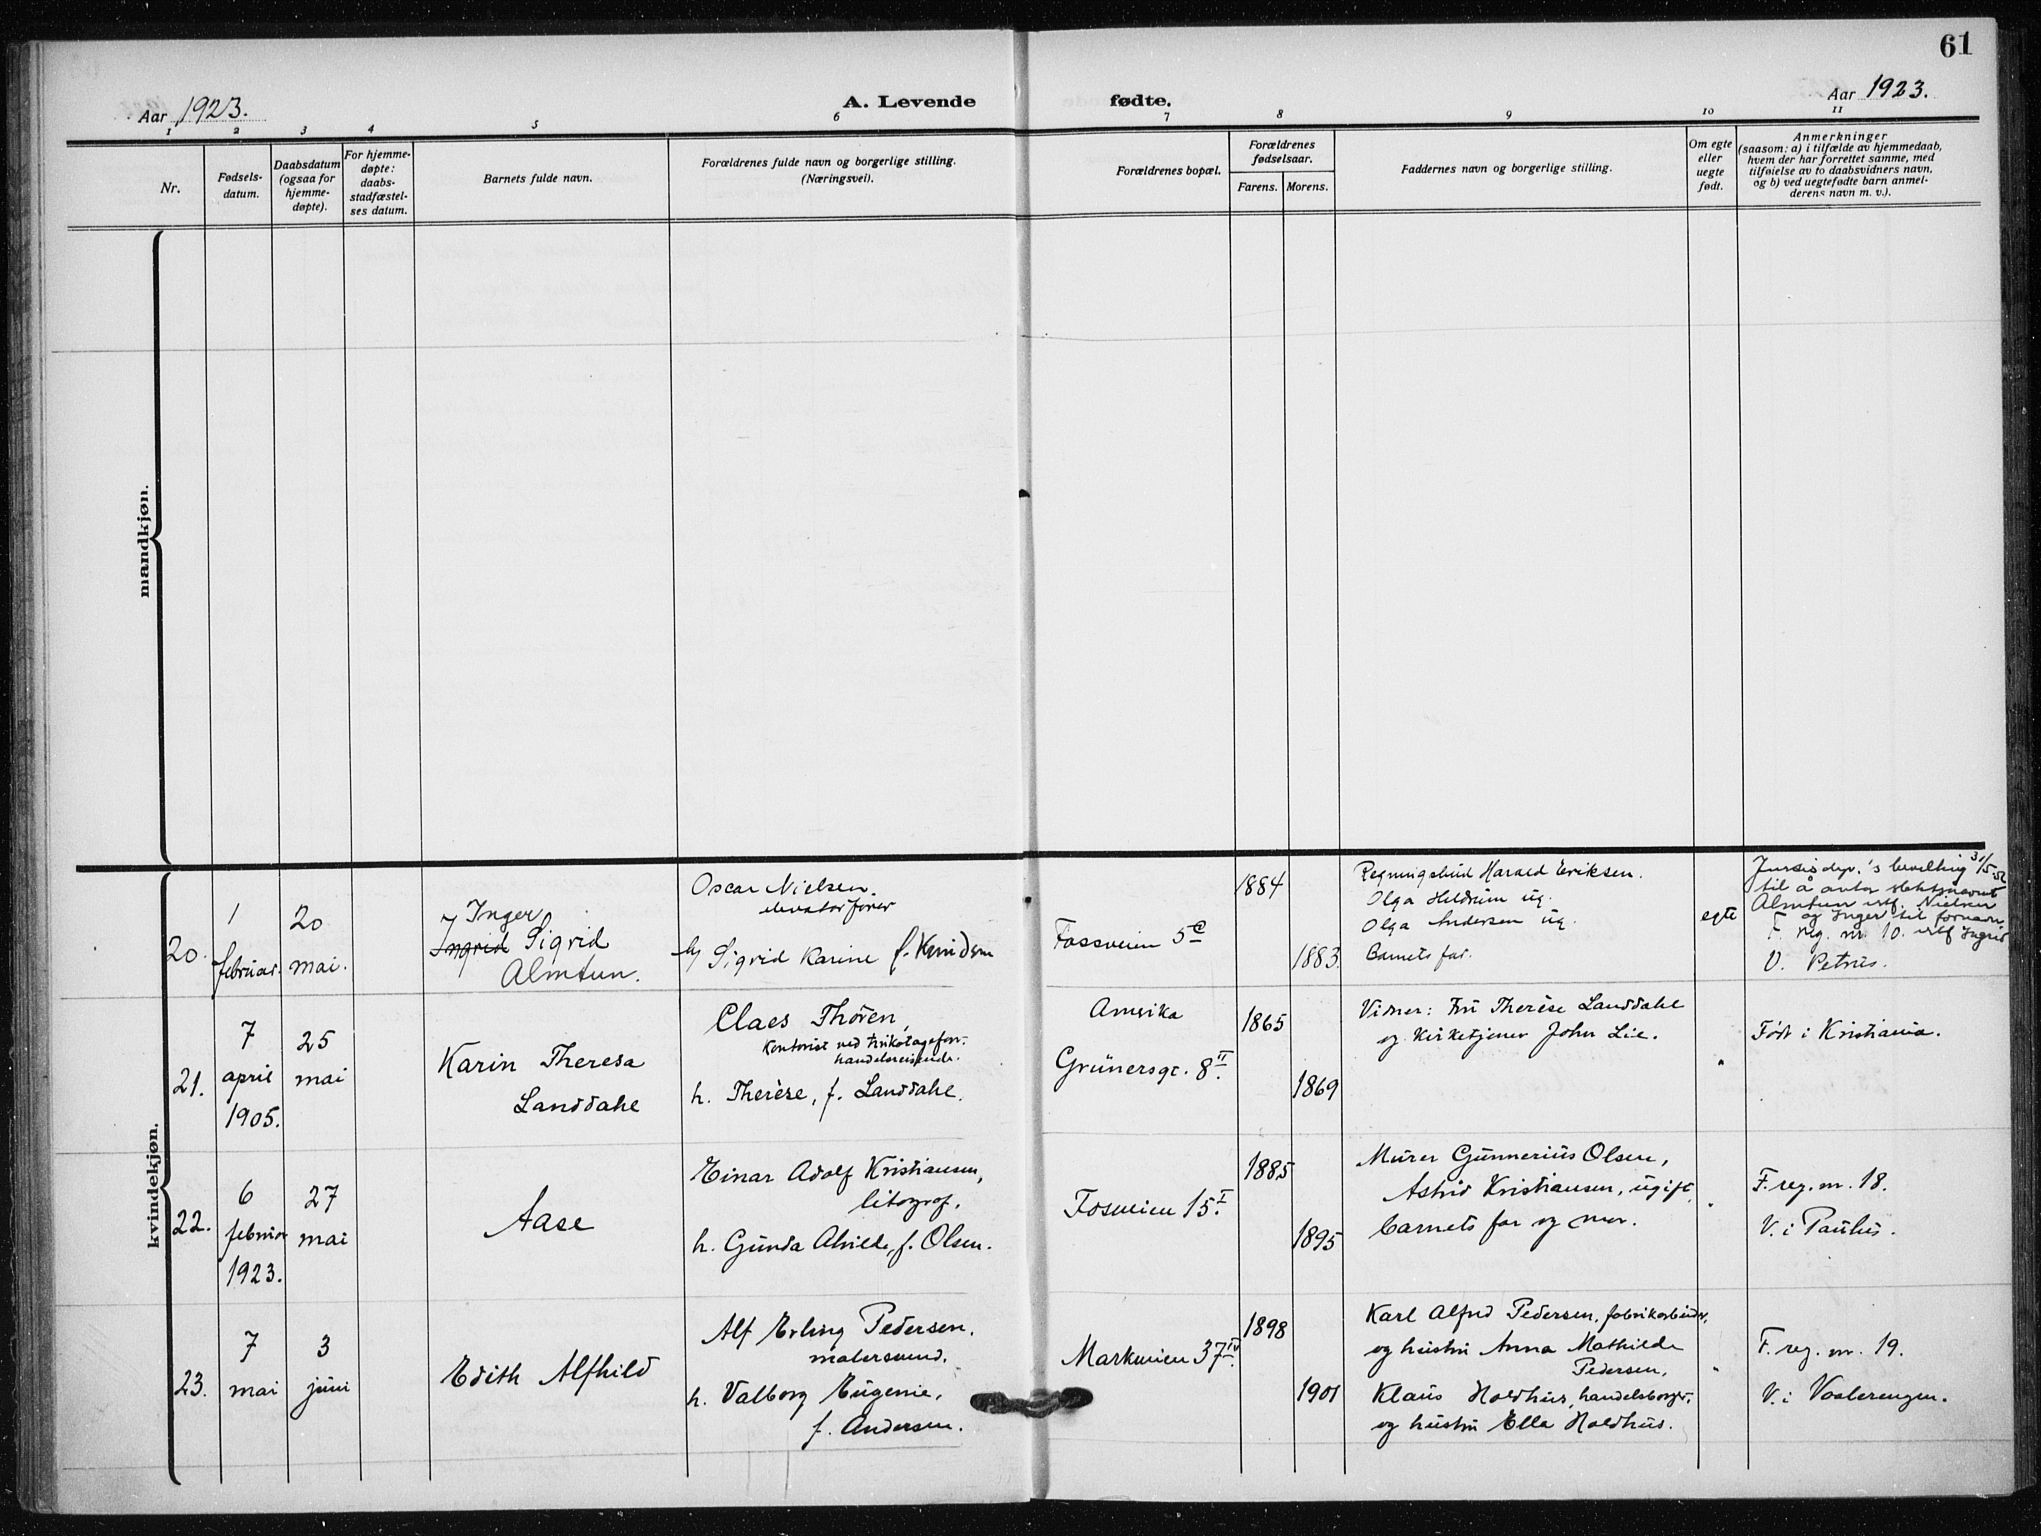 61
Aar 1923.
A. Levende fødte.
Aar 1923.
1 2 3 4 5 6 7 8 9 10 11
Nr.
Fødsels-
datum.
Daabsdatum
(ogsaa for
hjemme-
døpte).
For hjemme-
døpte:
daabs-
stadfæstel-
ses datum.
Barnets fulde navn.
Forældrenes fulde navn og borgerlige stilling.
(Næringsvei).
Forældrenes bopæl.
Forældrenes
fødselsaar.
Farens. Morens.
Faddernes navn og borgerlige stilling.
Om egte
eller
uegte
født.
Anmerkninger
(saasom: a) i tilfælde av hjemmedaab,
hvem der har forrettet samme, med
tilføielse av to daabsvidners navn,
og b) ved uegtefødte barn anmel-
derens navn m. v.).
mandkjøn.
kvindekjøn.
20.
1
februar.
20
mai.
Inger
Ingrid Sigrid
Almtun.
Oscar Nielsen.
elevatorfører
h Sigrid Karine f. Knudsen
Fossveien 5c
1884
1883.
Regningsbud Harald Eriksen.
Olga Hildrum ug.
Olga Andersen ug.
Barnets far.
egte
Justisdep.'s bevilling 31/5-52
til å anta slektsnavnet
Almtun istf. Nielsen
og Inger til fornavn
F. reg. nr. 10. istf Ingrid
V. Petrus.
21.
7
april
1905.
25
mai
Karin Theresa
Landdahl
Claes Thorén,
Kontorist ved trikotagefor.
handelsreisende.
h. Therése, f. Landdahl.
Amerika
Grünersgt. 8 II.
1865
1869
Vidner: Fru Therèse Landdahl
og Kirketjener John Lie.
"
Født i Kristiania.
22.
6
februar
1923.
27
mai
Aase
Einar Adolf Kristiansen,
litograf.
h. Gunda Alvilde, f. Olsen.
Fosveien 15 I.
1885
1895
Murer Gunnerius Olsen,
Astrid Kristiansen, ugift,
barnets far og mor.
"
F. reg. nr. 18.
V. i Paulus.
23.
7
mai
3
juni
Edith Alfhild
Alf Erling Pedersen.
malersvend.
h. Valborg Eugenie,
f. Andersen.
Markveien 37 IV.
1898
1901
Karl Alfred Pedersen, fabrikarbeider,
og hustru Anna Mathilde
Pedersen,
Klaus Holdhus, handelsborger.
og hustru Ella Holdhus.
"
F. reg. nr. 19.
V. i Vaalerengen.